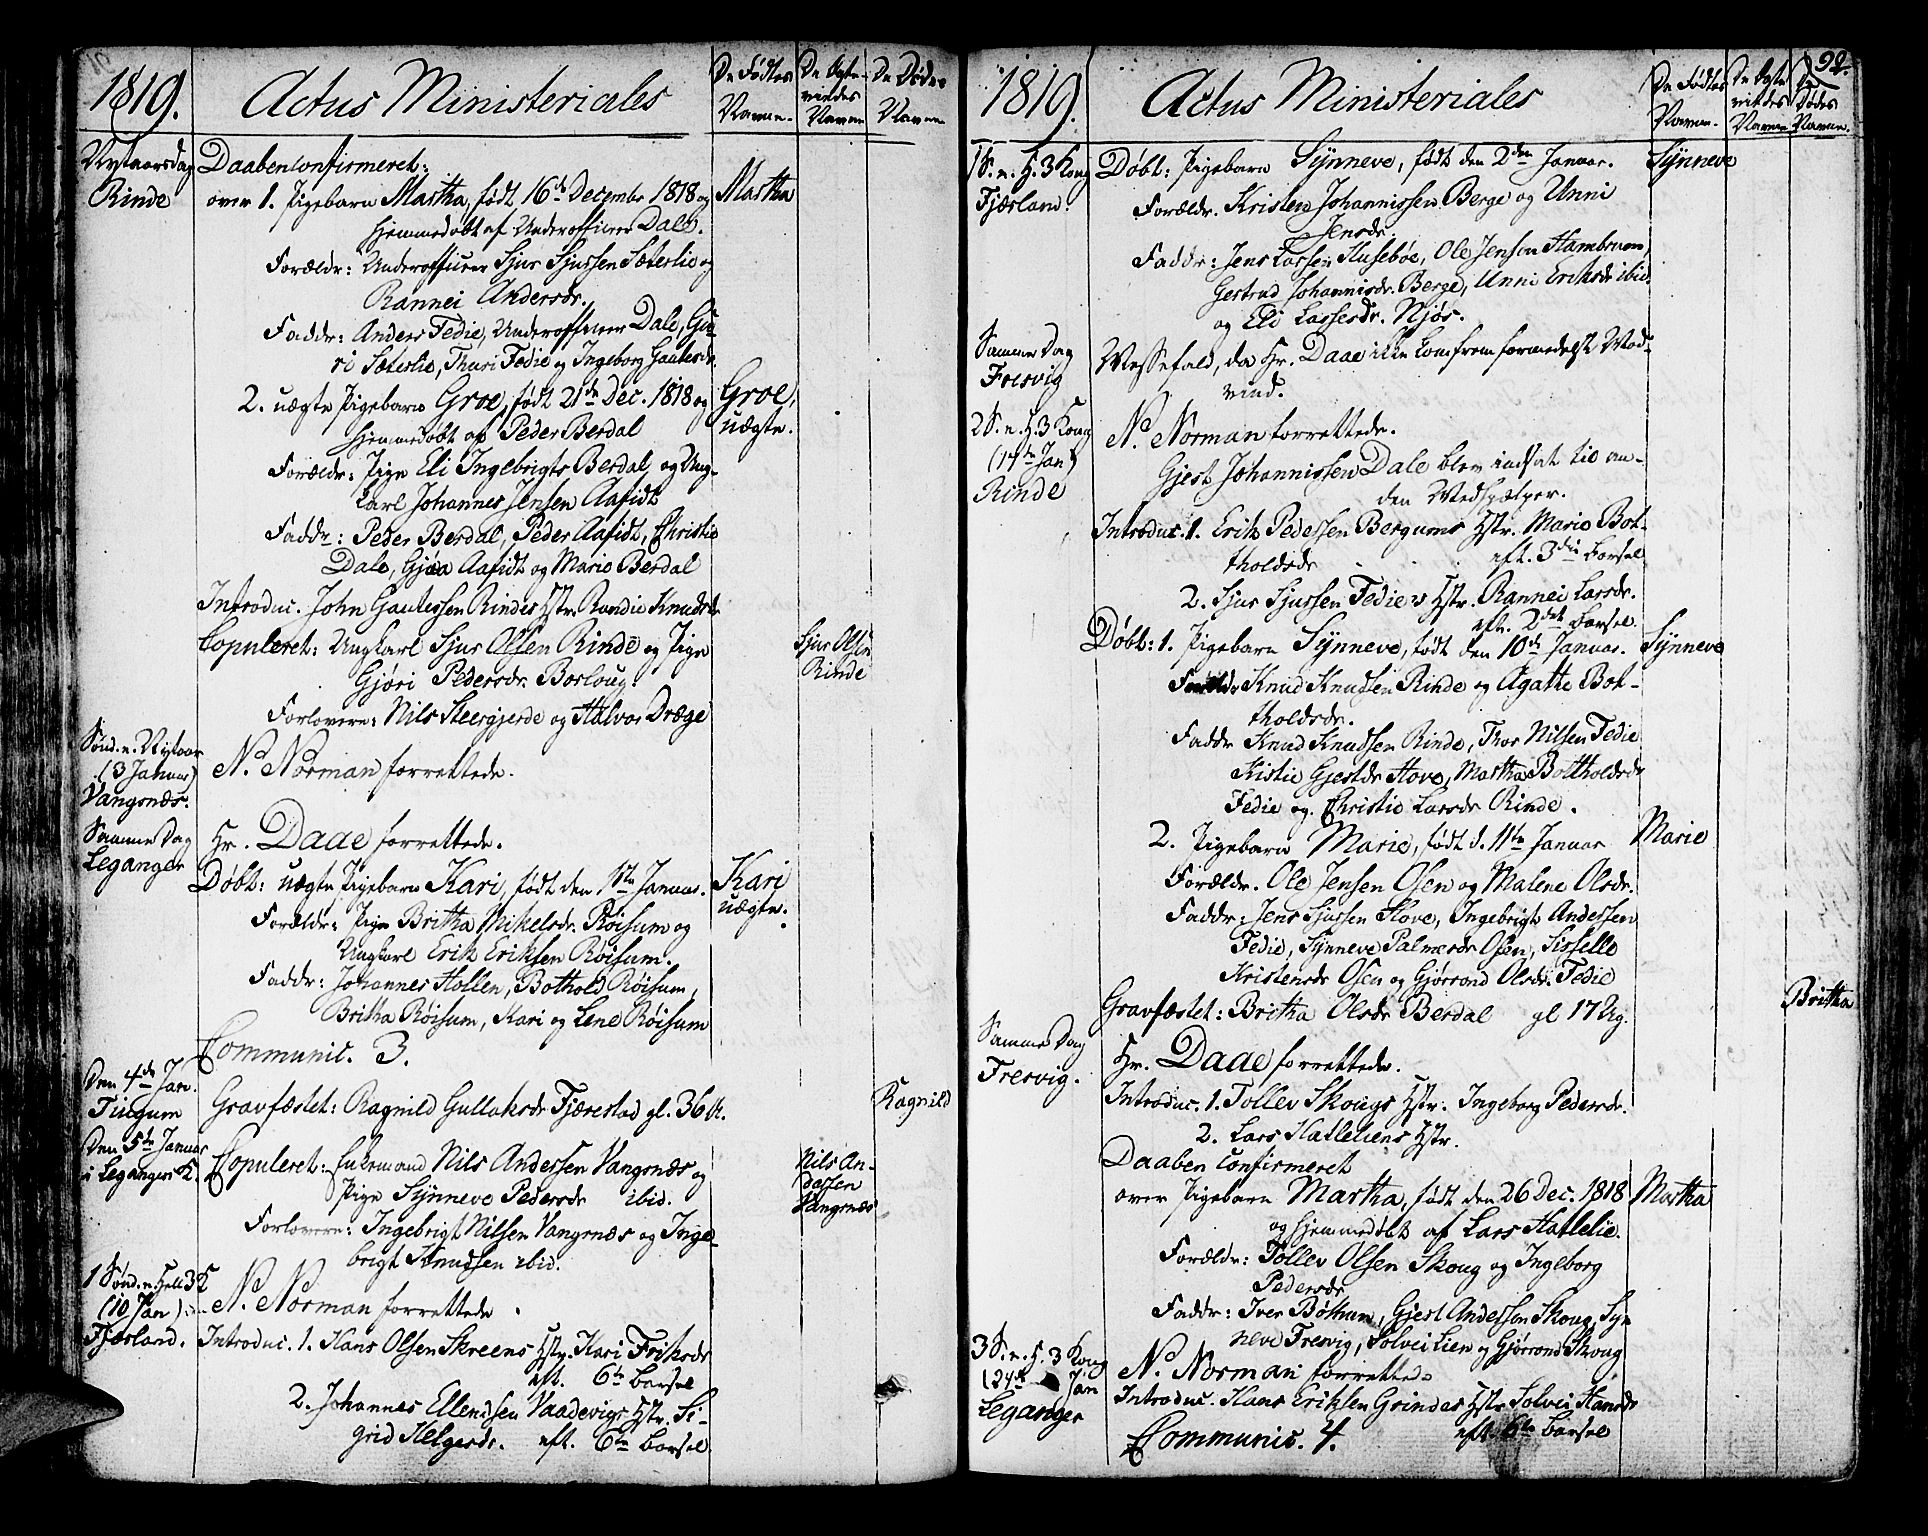 1819.
Actus Ministeriales
De Fødtes Navne.
De Ægtevindes Navne
De Dødes Navne
Nytaarsdag
Rinde
Daaben confirmeret:
over 1. Pigebarn Martha, født 16de Decembr 1818 og
Martha
hjemmedøbt af Underofficeer Dale.
Forældr: Underofficeer Sjur Sjurssen Sæterlie og
Rannei Andersdr.
Faddr: Anders Fedie, Underofficeer Dale, Gu-
ri Sæterlie, Thuri Fedie og Ingeborg Gautesdr.
2. uægte Pigebarn Groe, født 21de Dec. 1818 og
Groe,
uægte.
hjemmedøbt af Peder Berdal
Forældr: Pige Eli Ingebrigts Berdal, og Ung-
karl Johannes Jensen Aafidt
Faddr: Peder Berdal, Peder Aafidt, Christie
Dale, Gjøa Aafidt og Marie Berdal
Introduc. John Gautessen Rindes Hstr. Randie Knudsdr
Copuleret: Ungkarl Sjur Olsen Rinde og Pige
Sjur Olsen
Rinde
Gjøri Pedersdr. Borloug.
Forlovere: Nils Steergjerde og Halvor Dræge
Sønd. n. Nytaar
(3 Januar)
Vangsnæs.
N. Norman forrettede.
Samme Dag
Leganger
Hr. Daae forrettede.
Døbt: uægte Pigebarn Kari, født den 1ste Januar.
Kari
uægte.
Forældr: Pige Britha Mikelsdr. Røisum og
Ungkarl Erik Eriksen Røisum.
Faddr: Johannes Hollen, Bothold Røisum,
Britha Røisum, Kari og Lene Røisum
Communic. 3.
Den 4de Jan.
Tingum
Gravfæstet: Ragnild Gullaksdr Fjærestad gl. 36
Ragnild
Den 5te Januar
i Leganger K.
Copuleret: Enkemand Nils Andersen Vangsnæs og
Nils An-
dersen
Vangsnæs
Pige Synneve Pedersdr ibid.
Forlovere: Ingebrigt Nilsen Vangsnæs og Inge-
brigt Knudsen ibid.
1 Sønd. n. Hell. 3 K
(10 Jan)
Fjærland.
N. Norman forrettede.
Introduc. 1. Hans Olsen Skreens Hstr. Kari Eriksdr
eft. 6te Barsel
2. Johannes Ellendsen Vaadevigs Hstr. Si-
grid Helgesdr. eft. 6te Barsel
1819.
Actus Ministeriales
92.
De Fødtes Navne.
De Ægtevindes Navne
De Dødes Navne.
1 S. n. H. 3 Kong
Fjærland.
Døbt: Pigebarn Synneve, født den 2den Januar.
Synneve
Forældr. Kristen Johannissen Berge og Unni
Jensdr.
Faddr: Jens Lassen Husebøe, Ole Jensen Hambreen,
Gertrud Johannisdr. Berge, Unni Eriksdr ibid.
og Eli Lassesdr. Njøs.
Samme Dag
Fresvig
Messefald, da Hr. Daae ikke kom frem formedelst Mod-
vind.
2 S. n. H. 3 Kong
(17de Jan)
Rinde
N. Norman forrettede.
Gjest Johannissen Dale blev indsat til an-
den Medhjælper.
Introduc. 1. Erik Pedersen Bergums Hstr. Marie Bot-
tholdsdr eft. 3die Barsel
2. Sjur Sjurssen Fedies Hstr. Rannei Larsdr.
eft. 2det Barsel.
Døbt: 1. Pigebarn Synneve, født den 10de Januar.
Synneve
Forældr Knud Knudsen Rinde og Agathe Bot-
tholdsdr.
Faddr Knud Knudsen Rinde, Thor Nilsen Fedie
Kistie Gjestdr Hove, Martha Bottholdsdr
Fedie og Christie Larsdr Rinde.
2. Pigebarn Marie, født d. 11te Januar
Marie
Forældr. Ole Jensen Osen og Malene Olsdr.
Faddr: Jens Sjursen Hove, Ingebrigt Andersen
Fedie, Synneve Palmersdr Osen, Sisselle
Kristensdr Osen og Gjørrond Olsdr. Fedie
Gravfæstet: Britha Olsdr Berdal gl 17 Ug.
Britha
Samme Dag
Fresvig.
Hr. Daae forrettede.
Introduc. 1. Tollev Skougs Hstr. Ingeborg Pedersdr.
2. Lars Hatleliens Hstr.
Daaben confirmeret
over Pigebarn Martha, født den 26 Dec. 1818
Martha
og hjemmedøbt af Lars Hatlelie.
Forældr: Tollev Olsen Skoug og Ingeborg
Pedersdr
Faddr: Iver Bøthun, Gjest Andersen Skoug, Syn-
neve Fresvig, Solvei Lien og Gjørrond Skoug
3 S. n. H. 3 Kong
(24de Jan
Leganger
N. Norman forrettede
Introduc. Hans Eriksen Grindes Hstr Solvei Hansdr
eft. 6te Barsel
Communic. 4.